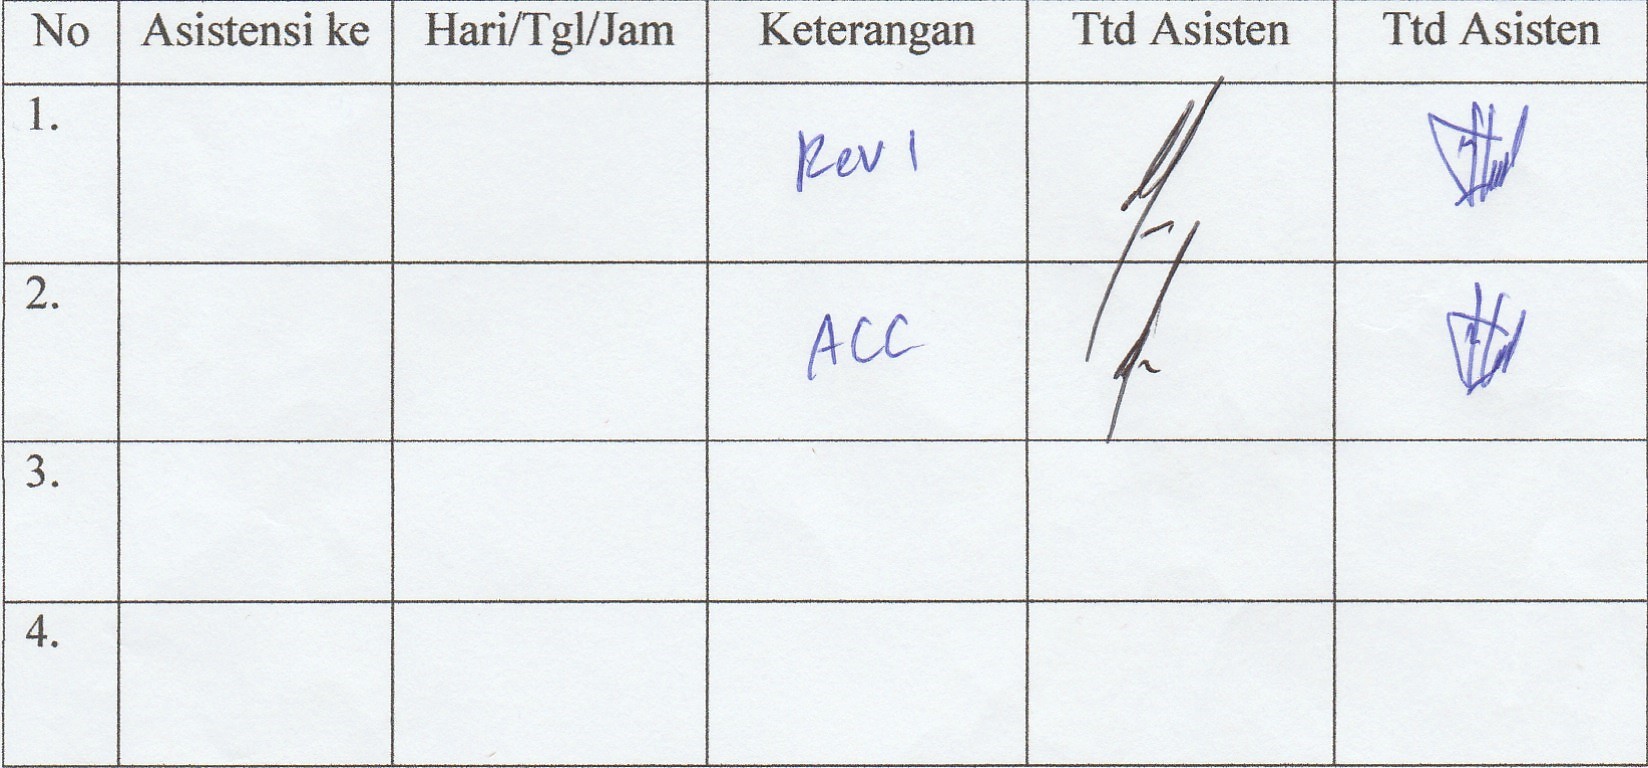 No Asistensi ke Hari/Tgl/Jam Keterangan Ttd Asisten Ttd Asisten
1. Rev 1
2. ACC
3.
4.